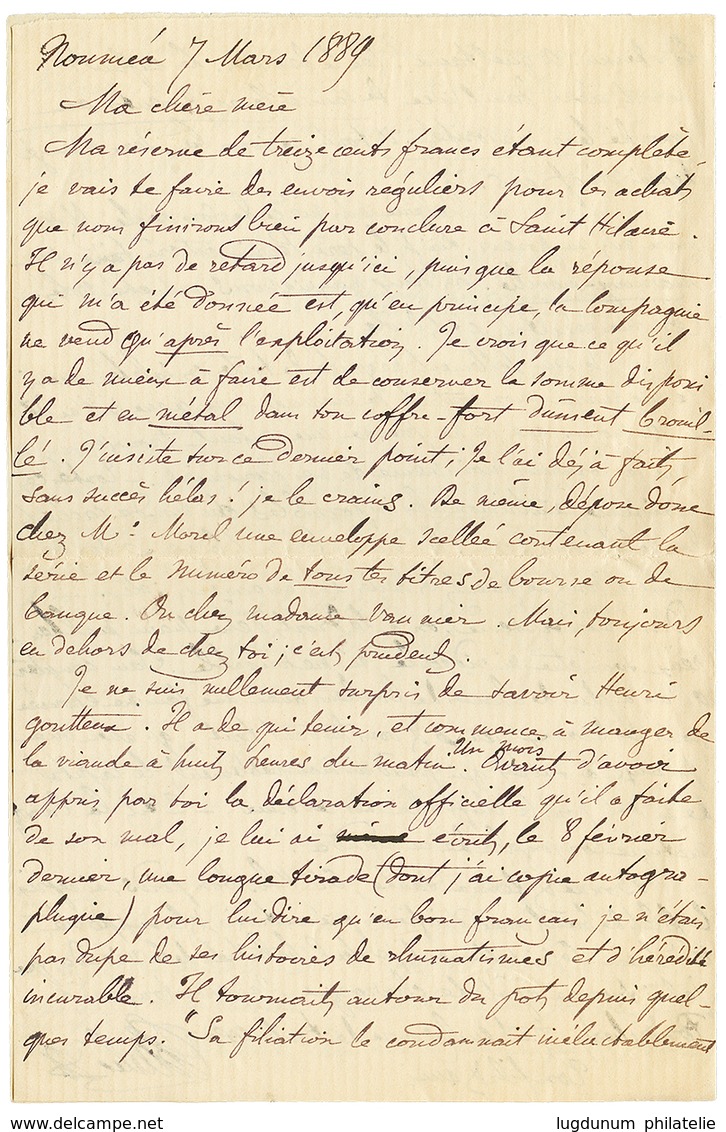 Nouméa 7 Mars 1889
Ma chère mère
Ma réserve de treize cents francs étant complète,
je vais te faire des envois réguliers pour les achats
que nous finirons bien par conclure à Saint Hilaire.
Il n'y a pas de retard jusqu'ici, puisque la réponse
qui m'a été donnée est, qu'en principe, la Compagnie
ne vend qu'après l'exploitation. Je crois que ce qu'il
y a de mieux à faire est de conserver la somme disponi
ble et en métal dans ton coffre-fort dûment brouil-
lé. J'insiste sur ce dernier point; Je l'ai déjà fait,
sans succès hélas! je le crains. De même, dépose donc
chez Mr. Morel une enveloppe scellée contenant la
série et le numéro de tous tes titres de bourse ou de
banque. Ou chez madame Vannier. Mais, toujours
en dehors de chez toi; c'est prudent.
Je ne suis nullement surpris de savoir Henri
goutteux. Il a de qui tenir, et commence à manger de
la viande à huit heures du matin. Un mois avant d'avoir
appris par toi la déclaration officielle qu'il a faite
de son mal, je lui ai écrit, le 8 février
dernier, une longue tirade (dont j'ai copie autogra-
phique) pour lui dire qu'en bon français je n'étais
pas dupe de ses histoires de rhumatismes et d'hérédité
incurable. Il tournait autour du pot depuis quel-
ques temps. "Sa filiation le condamnait inéluctablement
lugdunum philatelie
www.delcampe.net